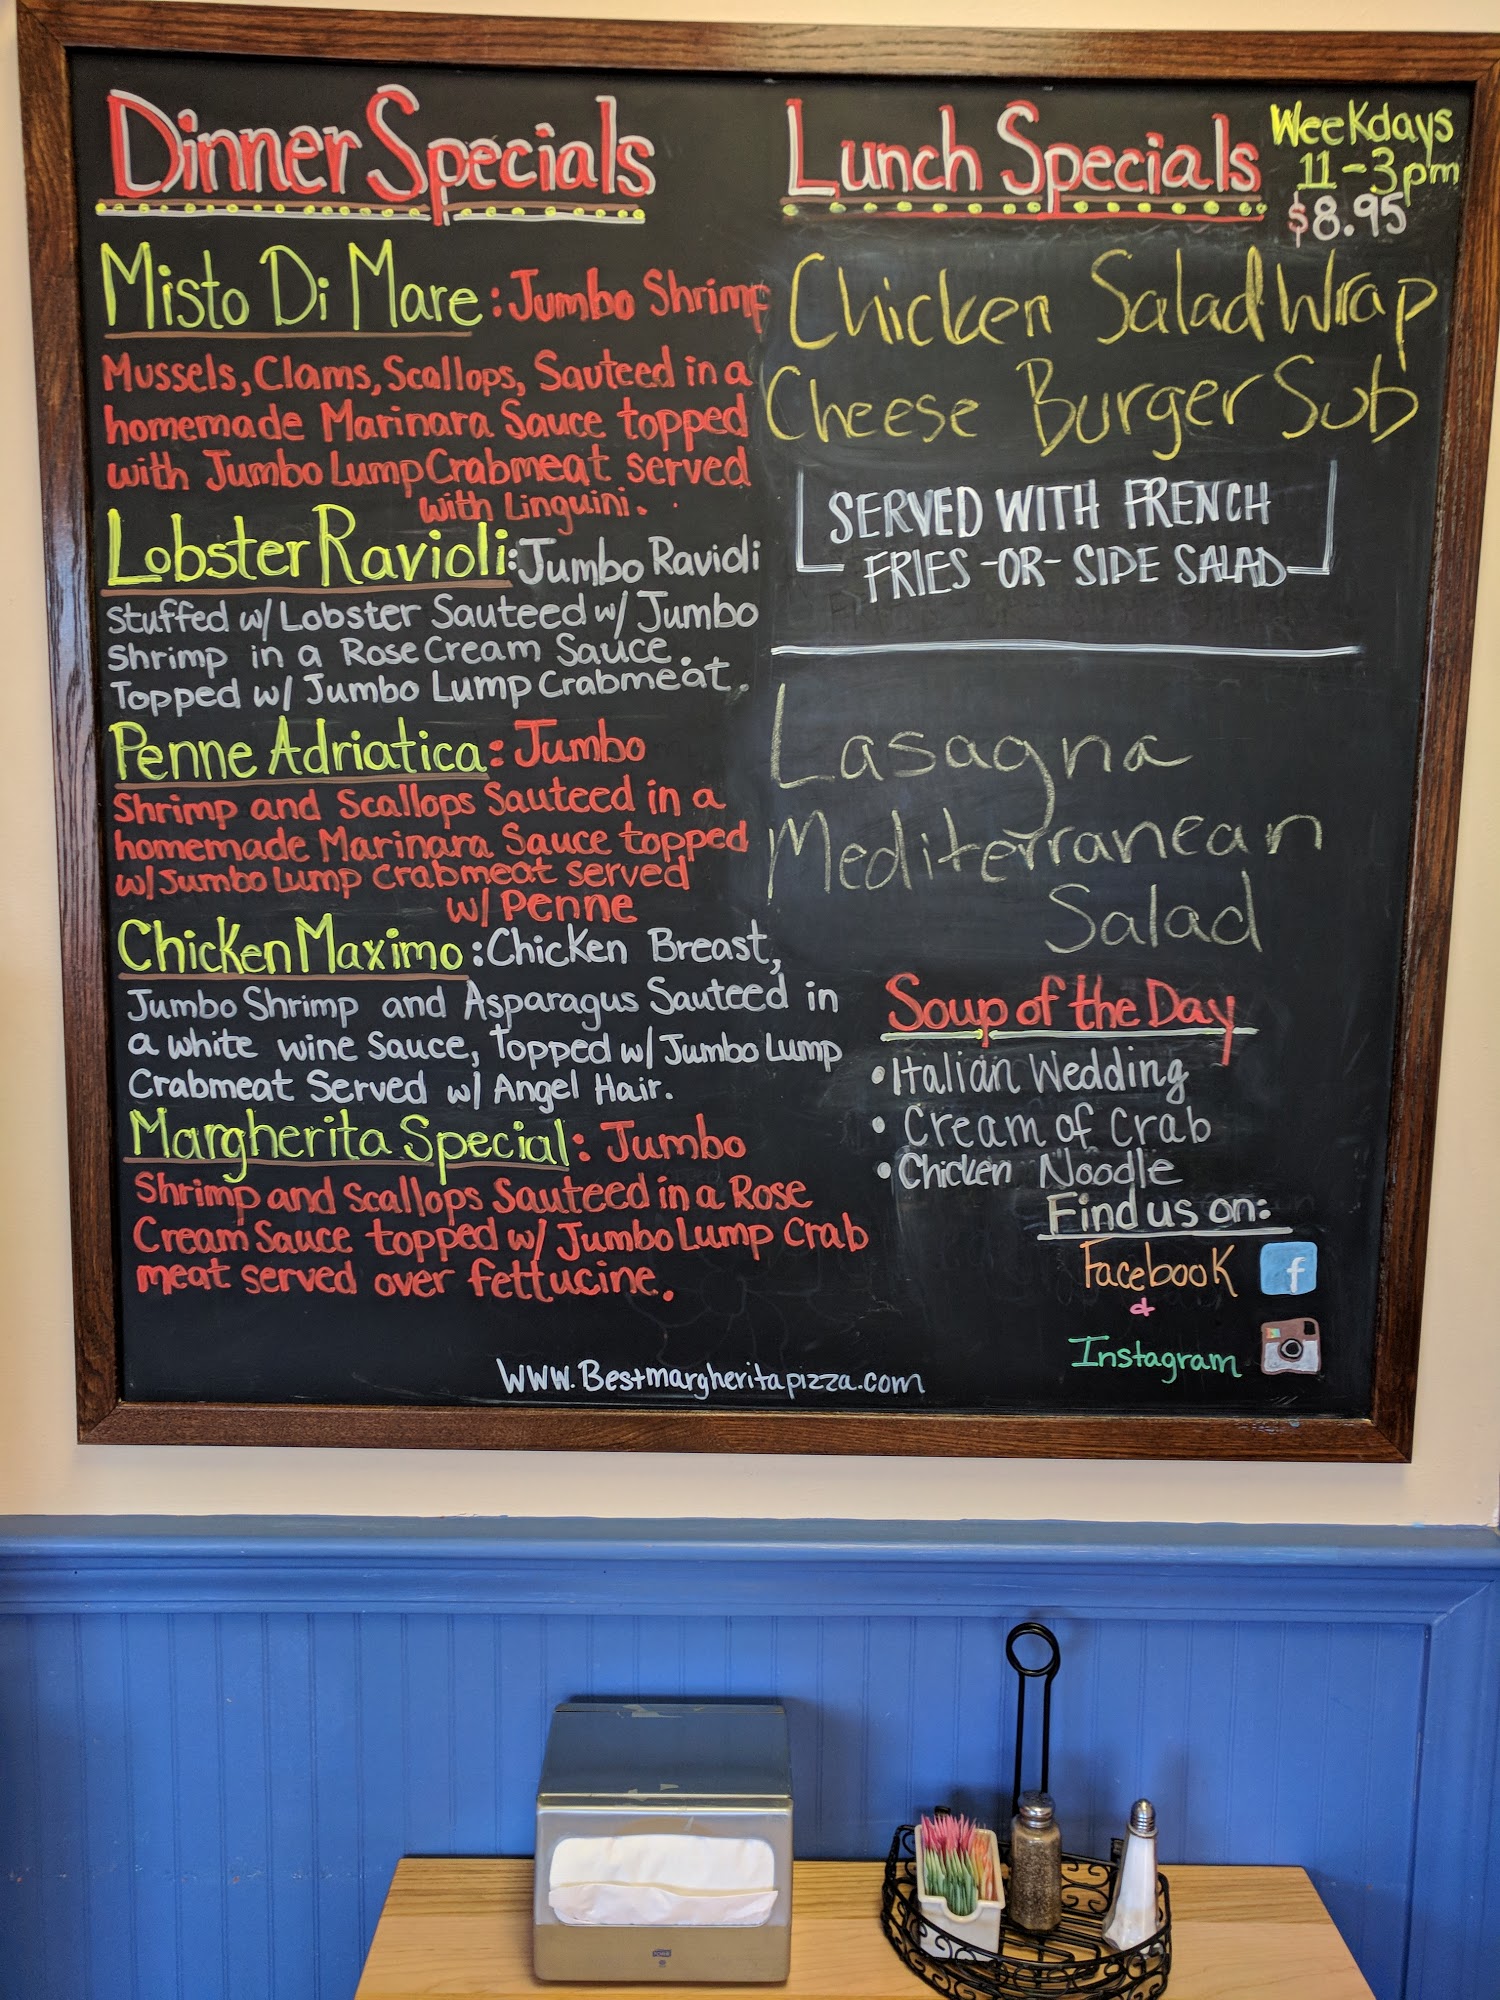 Dinner Specials
Misto Di Mare: Jumbo Shrimp
Mussels, Clams, Scallops, Sauteed in a
homemade Marinara Sauce topped
with Jumbo Lump Crabmeat served
with Linguini.
Lobster Ravioli: Jumbo Ravioli
stuffed w/ Lobster Sauteed w/ Jumbo
Shrimp in a Rose Cream Sauce.
Topped w/ Jumbo Lump Crabmeat.
Penne Adriatica: Jumbo
Shrimp and Scallops Sauteed in a
homemade Marinara Sauce topped
w/ Jumbo Lump Crabmeat served
w/ Penne
Chicken Maximo: Chicken Breast,
Jumbo Shrimp and Asparagus Sauteed in
a white wine sauce, topped w/ Jumbo Lump
Crabmeat Served w/ Angel Hair.
Margherita Special: Jumbo
Shrimp and Scallops Sauteed in a Rose
Cream Sauce topped w/ Jumbo Lump Crab
meat served over fettucine.
Lunch Specials
Weekdays
11-3pm
$8.95
Chicken Salad Wrap
Cheese Burger Sub
SERVED WITH FRENCH
FRIES -OR- SIDE SALAD
Lasagna
Mediterranean
Salad
Soup of the Day
• Italian Wedding
• Cream of Crab
• Chicken Noodle
Find us on:
Facebook f
&
Instagram
www.Bestmargheritapizza.com